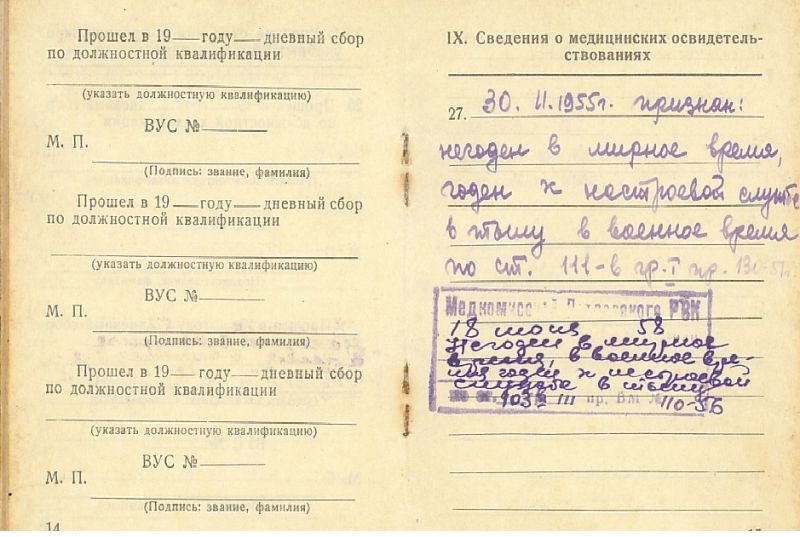 Прошел в 19 — году — дневный сбор
по должностной квалификации
(указать должностную квалификацию)
ВУС №
М. П.
(Подпись: звание, фамилия)
Прошел в 19 — году — дневный сбор
по должностной квалификации
(указать должностную квалификацию)
ВУС №
М. П.
(Подпись: звание, фамилия)
Прошел в 19 — году — дневный сбор
по должностной квалификации
(указать должностную квалификацию)
ВУС №
М. П.
(Подпись: звание, фамилия)
14
IX. Сведения о медицинских освидетель-
ствованиях
27. 30. II. 1955г. признан:
негоден в мирное время,
годен к нестроевой службе
в тылу в военное время
по ст. 111-в гр. I пр. 130-51г.
Медкомиссия РВК
18 июня 58
Негоден в мирное
время, в военное вре-
мя годен к нестроевой
службе в тылу
по ст. III пр. ВМ № 110-56